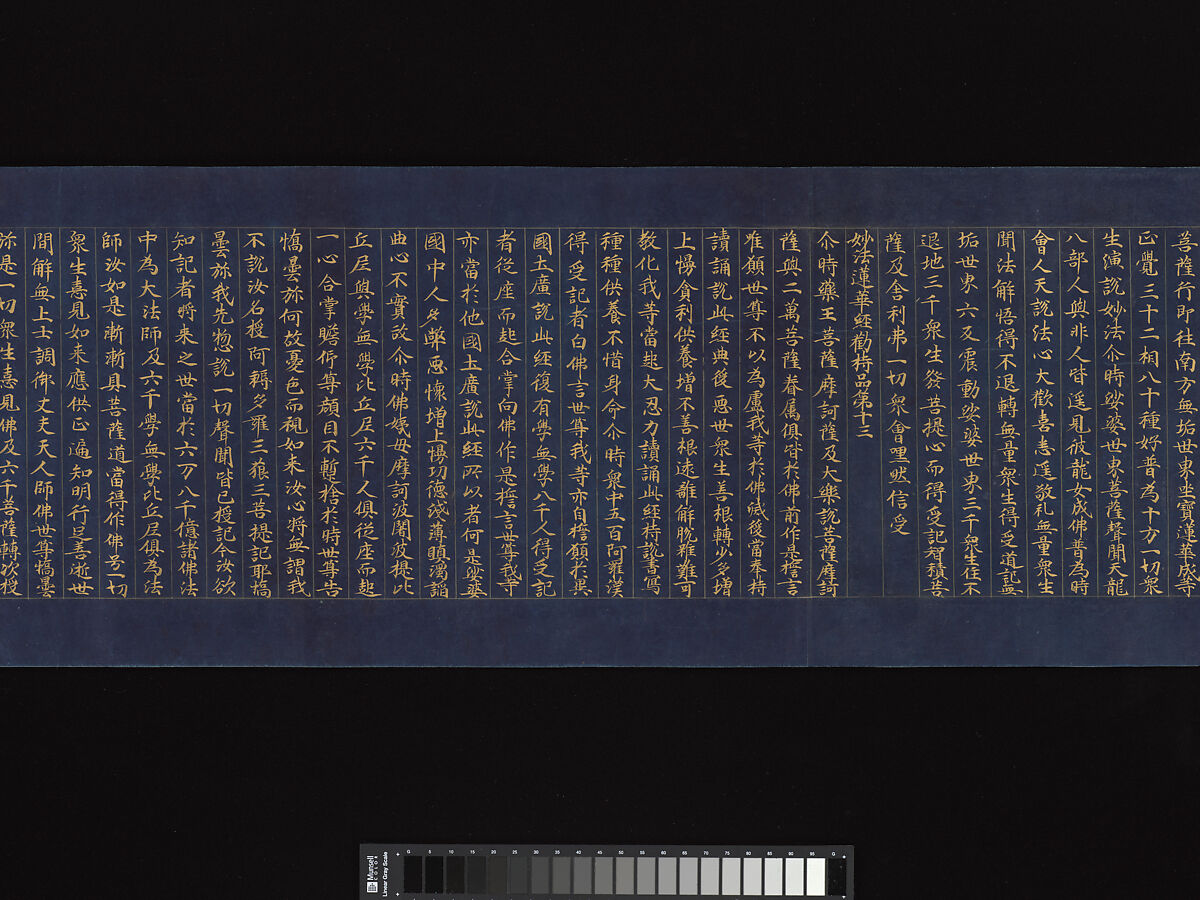 菩薩行即往南方無垢世界坐寶蓮華成等
正覺三十二相八十種好普為十方一切衆
生演說妙法尒時娑婆世界菩薩聲聞天龍
八部人與非人皆遥見彼龍女成佛普為時
會人天說法心大歡喜悉遥敬礼無量衆生
聞法解悟得不退轉無量衆生得受道記無
垢世界六反震動娑婆世界三千衆生住不
退地三千衆生發菩提心而得受記智積菩
薩及舍利弗一切衆會嘿然信受
妙法蓮華經勸持品第十三
尒時藥王菩薩摩訶薩及大樂說菩薩摩訶
薩與二萬菩薩眷属俱皆於佛前作是誓言
唯願世尊不以為慮我等於佛滅後當奉持
讀誦說此經典後惡世衆生善根轉少多增
上慢貪利供養增不善根遠離解脫雖難可
教化我等當起大忍力讀誦此經持說書寫
種種供養不惜身命尒時衆中五百阿羅漢
得受記者白佛言世尊我等亦自誓願於異
國土廣說此經復有學無學八千人得受記
者從座而起合掌向佛作是誓言世尊我等
亦當於他國土廣說此經所以者何是娑婆
國中人多弊惡懷增上慢功德淺薄瞋濁諂
曲心不實故尒時佛姨母摩訶波闍波提比
丘尼與學無學比丘尼六千人俱從座而起
一心合掌瞻仰尊顏目不暫捨於時世尊告
憍曇弥何故憂色而視如来汝心將無謂我
不說汝名授阿耨多羅三藐三菩提記耶憍
曇弥我先惣說一切聲聞皆已授記今汝欲
知記者將来之世當於六万八千億諸佛法
中為大法師及六千學無學比丘尼俱為法
師汝如是漸漸具菩薩道當得作佛号一切
衆生憙見如来應供正遍知明行足善逝世
間解無上士調御丈夫天人師佛世尊憍曇
弥是一切衆生憙見佛及六千菩薩轉次授
Munsell
COLOR
Linear Gray Scale
G 5 10 15 20 25 30 35 40 45 50 55 60 65 70 75 80 85 90 95 G